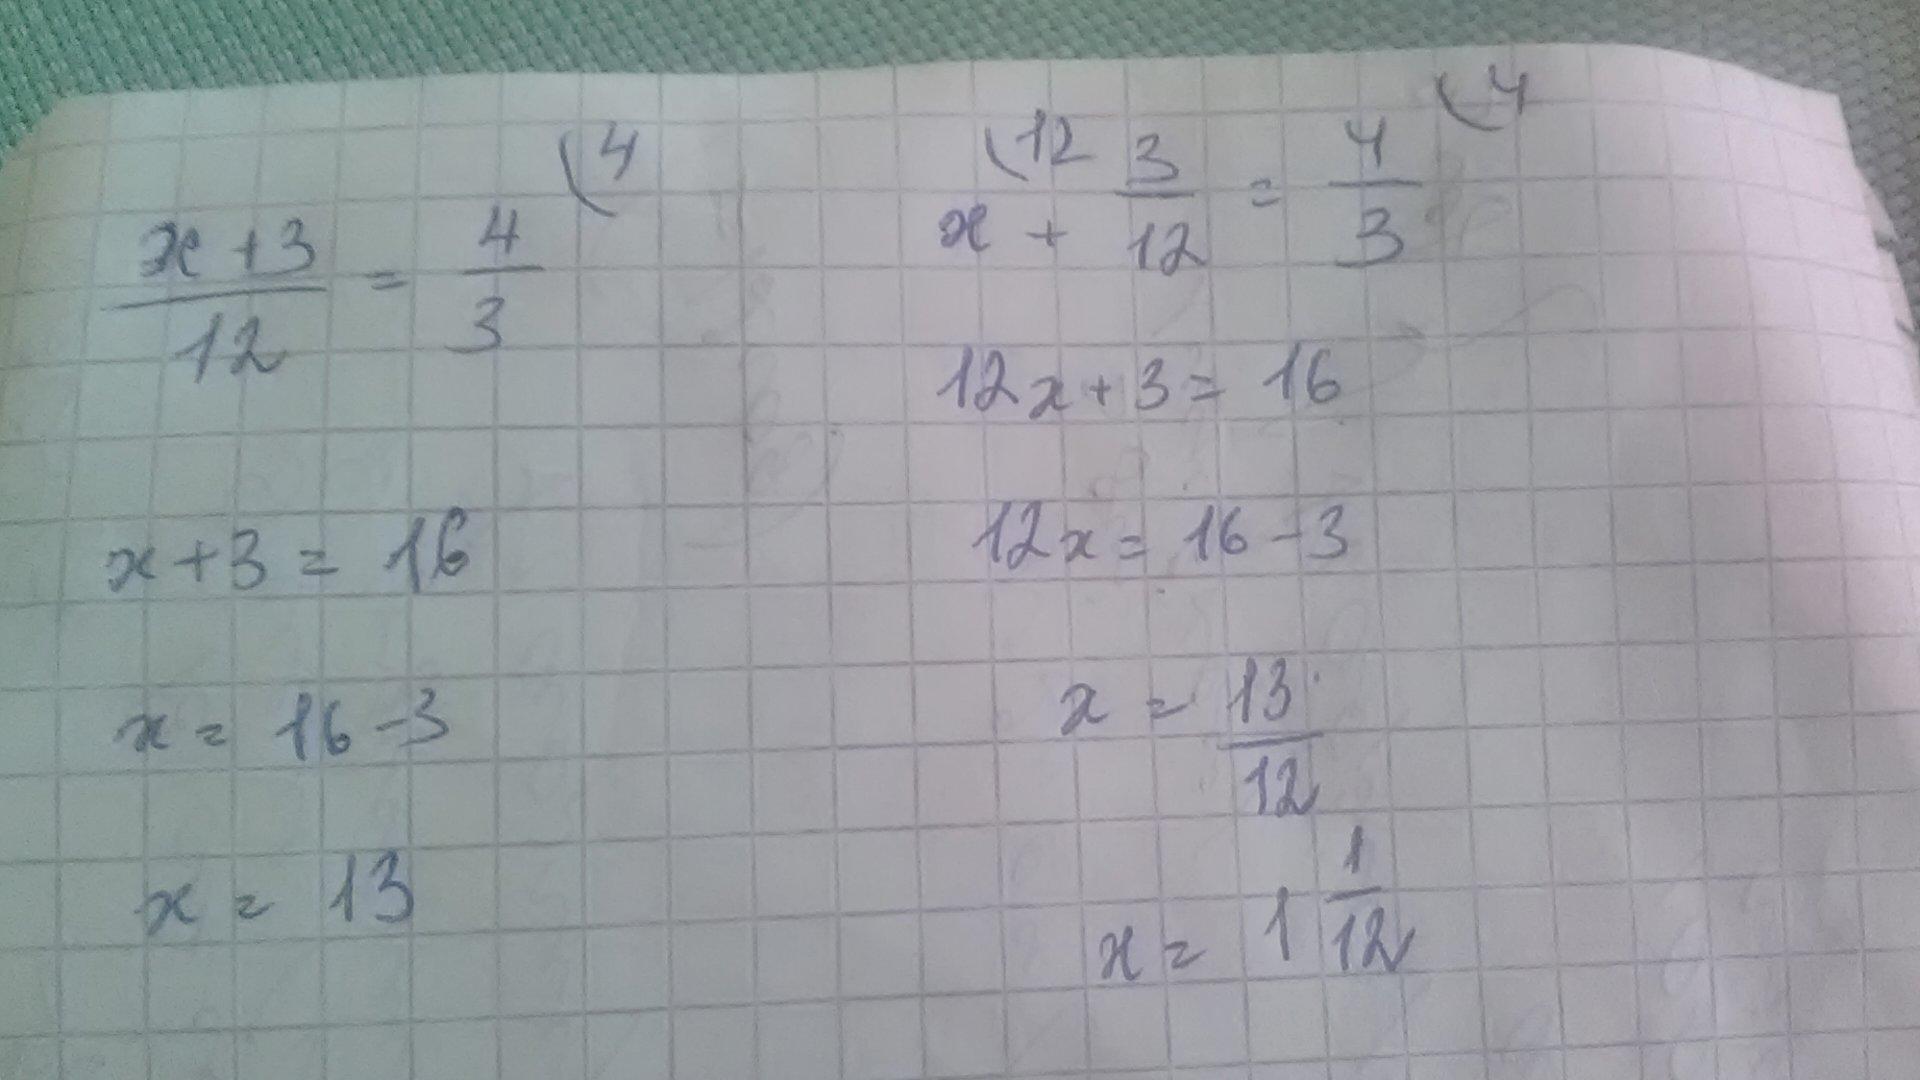 (x + 3)/12 = 4/3 (4
x + 3 = 16
x = 16 - 3
x = 13
(12 x + 3/12 = 4/3 (4
12x + 3 = 16
12x = 16 - 3
x = 13/12
x = 1 1/12